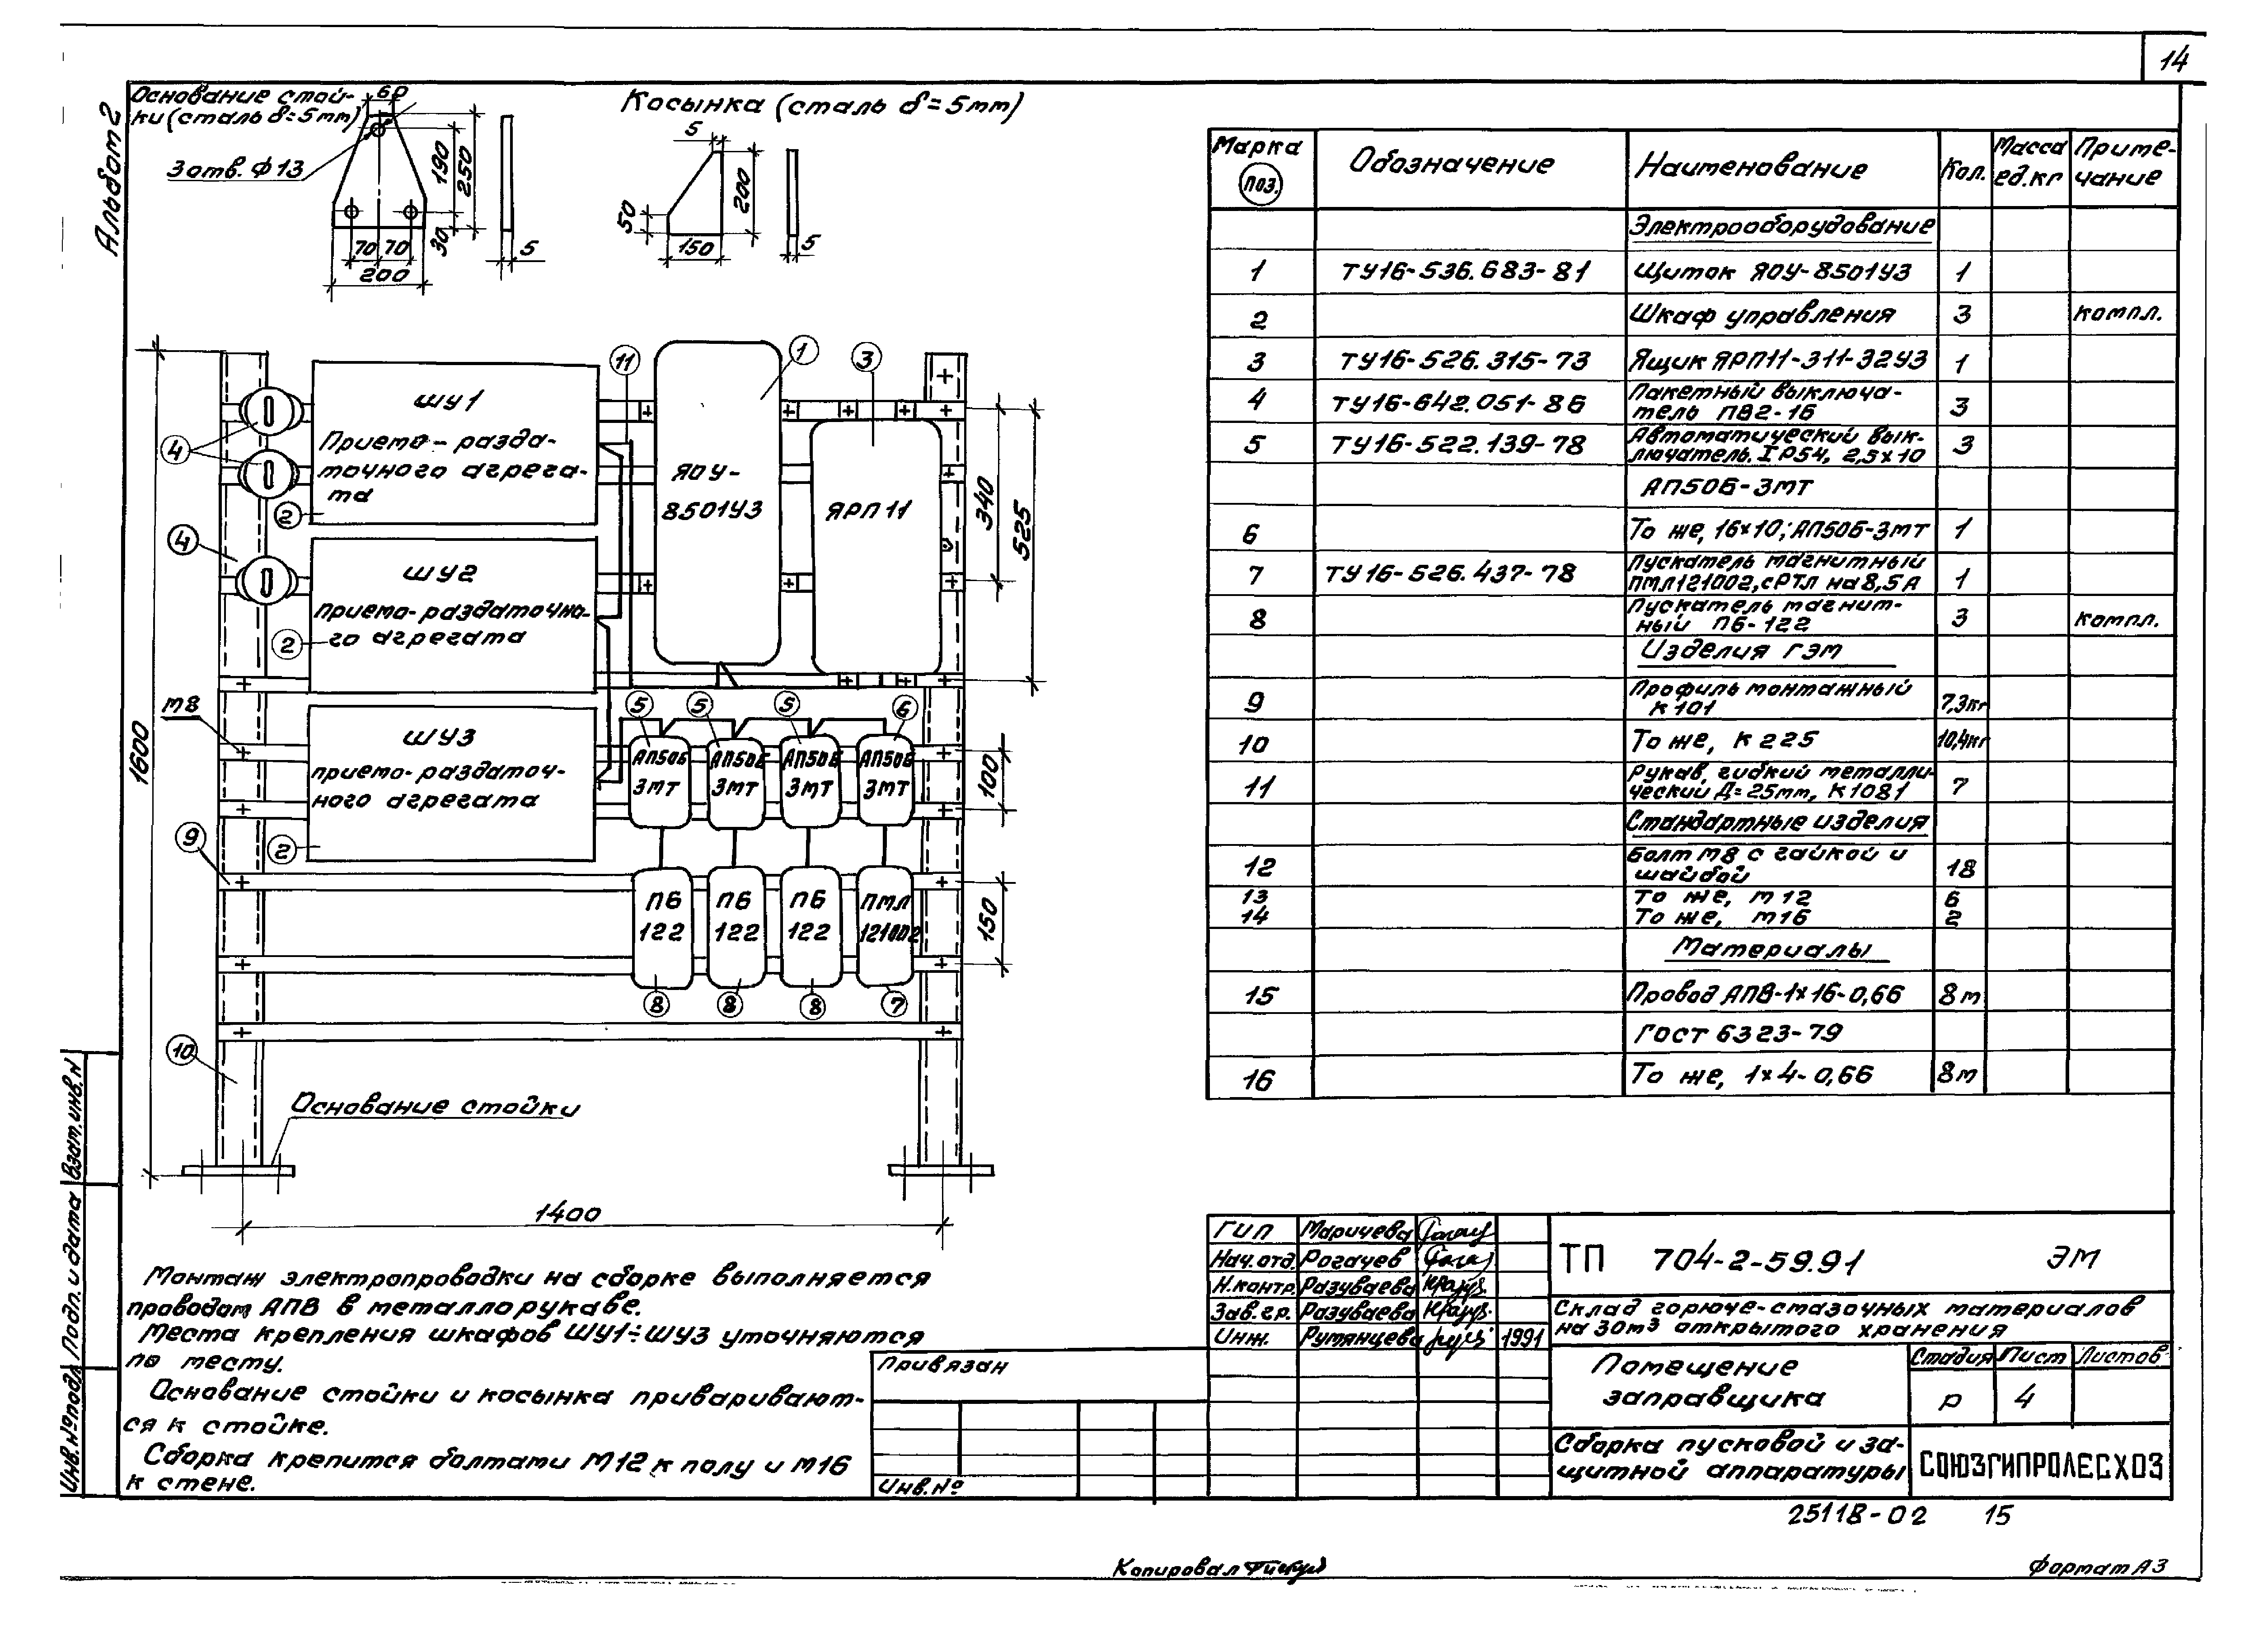 14
Альбом 2
Основание стой-
ки (сталь δ=5мм)
60
3 отв. Ф13
190
250
30
70 70
200
5
Косынка (сталь δ=5мм)
5
200
50
150
5
ШУ1
Приемо-разда-
точного агрега-
та
ШУ2
приемо-раздаточно-
го агрегата
ШУ3
приемо-раздаточ-
ного агрегата
ЯОУ-
8501У3
ЯРП11
АП50Б
3МТ
АП50Б
3МТ
АП50Б
3МТ
АП50Б
3МТ
ПБ
122
ПБ
122
ПБ
122
ПМЛ
121002
11
1
3
4
2
4
2
М8
5
5
5
6
9
2
8
8
8
7
10
340
525
100
150
1600
1400
Основание стойки
Монтаж электропроводки на сборке выполняется
проводом АПВ в металлорукаве.
Места крепления шкафов ШУ1÷ШУ3 уточняются
по месту.
Основание стойки и косынка приваривают-
ся к стойке.
Сборка крепится болтами М12 к полу и М16
к стене.
Марка поз. Обозначение Наименование Кол. Масса ед.кг Приме-чание
Электрооборудование
1 ТУ16-536.683-81 Щиток ЯОУ-8501У3 1
2 Шкаф управления 3 компл.
3 ТУ16-526.315-73 Ящик ЯРП11-311-32У3 1
4 ТУ16-642.051-86 Пакетный выключа-
тель ПВ2-16 3
5 ТУ16-522.139-78 Автоматический вык-
лючатель IP54, 2,5х10 3
АП50Б-3МТ
6 То же, 16х10; АП50Б-3МТ 1
7 ТУ16-526.437-78 Пускатель магнитный
ПМЛ121002, с РТЛ на 8,5А 1
8 Пускатель магнит-
ный ПБ-122 3 компл.
Изделия ГЭМ
9 Профиль монтажный
К101 7,3кг
10 То же, К225 10,4кг
11 Рукав, гибкий металли-
ческий Д=25мм, К1081 7
Стандартные изделия
12 Болт М8 с гайкой и
шайбой 18
13 То же, М12 6
14 То же, М16 2
Материалы
15 Провод АПВ-1х16-0,66 8м
ГОСТ 6323-79
16 То же, 1х4-0,66 8м
ГИП Маричева
Нач.отд. Рогачев
Н.контр. Разуваева
Зав.гр. Разуваева
Инж. Румянцева 1991
ТП 704-2-59.91 ЭМ
Склад горюче-смазочных материалов
на 30м³ открытого хранения
Помещение
заправщика
Стадия Лист Листов
Р 4
Сборка пусковой и за-
щитной аппаратуры
СОЮЗГИПРОЛЕСХОЗ
Привязан
Инв.№
Взам.инв.N
Подп. и дата
Инв.№подл
25118-02 15
Копировал
Формат А3